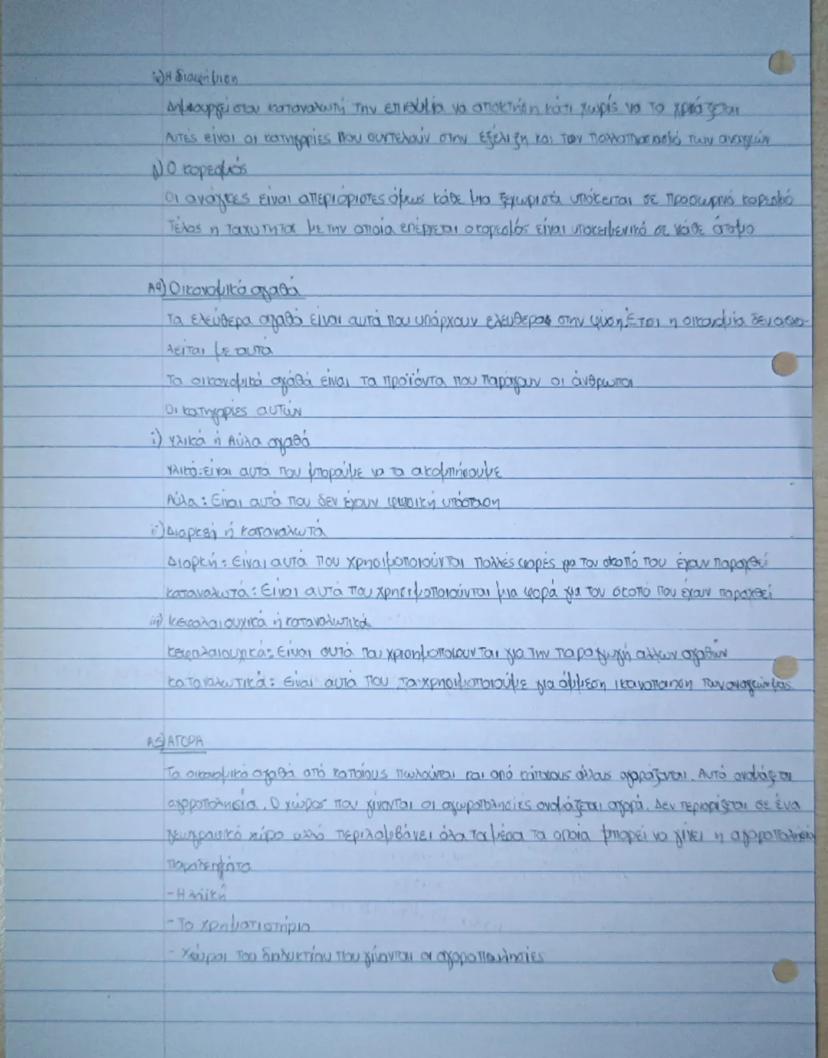 iv) Η διαφήμιση
Δημιουργεί στον καταναλωτή την επιθυμία να αποκτήση κάτι χωρίς να το χρειάζεται
Αυτές είναι οι κατηγορίες που συντελούν στην εξέλιξη και τον πολλαπλασιασμό των αναγκών
γ) Ο κορεσμός
Οι ανάγκες είναι απεριόριστες όμως κάθε μια ξεχωριστά υπόκειται σε προσωρινό κορεσμό
Τέλος η ταχύτητα με την οποία επέρχεται ο κορεσμός είναι υποκειμενικό σε κάθε άτομο
Α4) Οικονομικά αγαθά
Τα ελεύθερα αγαθά είναι αυτά που υπάρχουν ελεύθερα στην φύση. Έτσι η οικονομία δεν ασχο-
λείται με αυτά
Τα οικονομικά αγαθά είναι τα προϊόντα που παράγουν οι άνθρωποι
Οι κατηγορίες αυτών
i) Υλικά ή Αύλα αγαθά
Υλικά: είναι αυτά που μπορούμε να τα ακουμπήσουμε
Αύλα: Είναι αυτά που δεν έχουν φυσική υπόσταση
ii) Διαρκή ή καταναλωτά
Διαρκή: Είναι αυτά που χρησιμοποιούνται πολλές φορές για τον σκοπό που έχουν παραχθεί
καταναλωτά: Είναι αυτά που χρησιμοποιούνται μια φορά για τον σκοπό που έχουν παραχθεί
iii) κεφαλαιουχικά ή καταναλωτικά
κεφαλαιουχικά: Είναι αυτά που χρισημοποιουνται για την παραγωγή αλλων αγαθών
καταναλωτικά: είναι αυτά που τα χρησιμοποιούμε για άμμεση ικανοποιηση των αναγκών μας
Α5) ΑΓΟΡΑ
Τα οικονομικά αγαθά από κάποιους πωλούνται και από κάποιους άλλους αγοράζονται. Αυτό ονομάζεται
αγοροπωλησία. Ο χώρος που γίνονται οι αγωροπωλησίες ονομάζεται αγορά. Δεν περιορίζεται σε ένα
γεωγραφικό χώρο αλλά περιλαμβάνει όλα τα μέσα τα οποία μπορεί να γίνει η αγοροπωλησία
παραδείγματα
- Η λαϊκή
- Το χρηματιστήριο
- Χώροι του διαδυκτίου που γίνονται οι αγοροπωλησίες